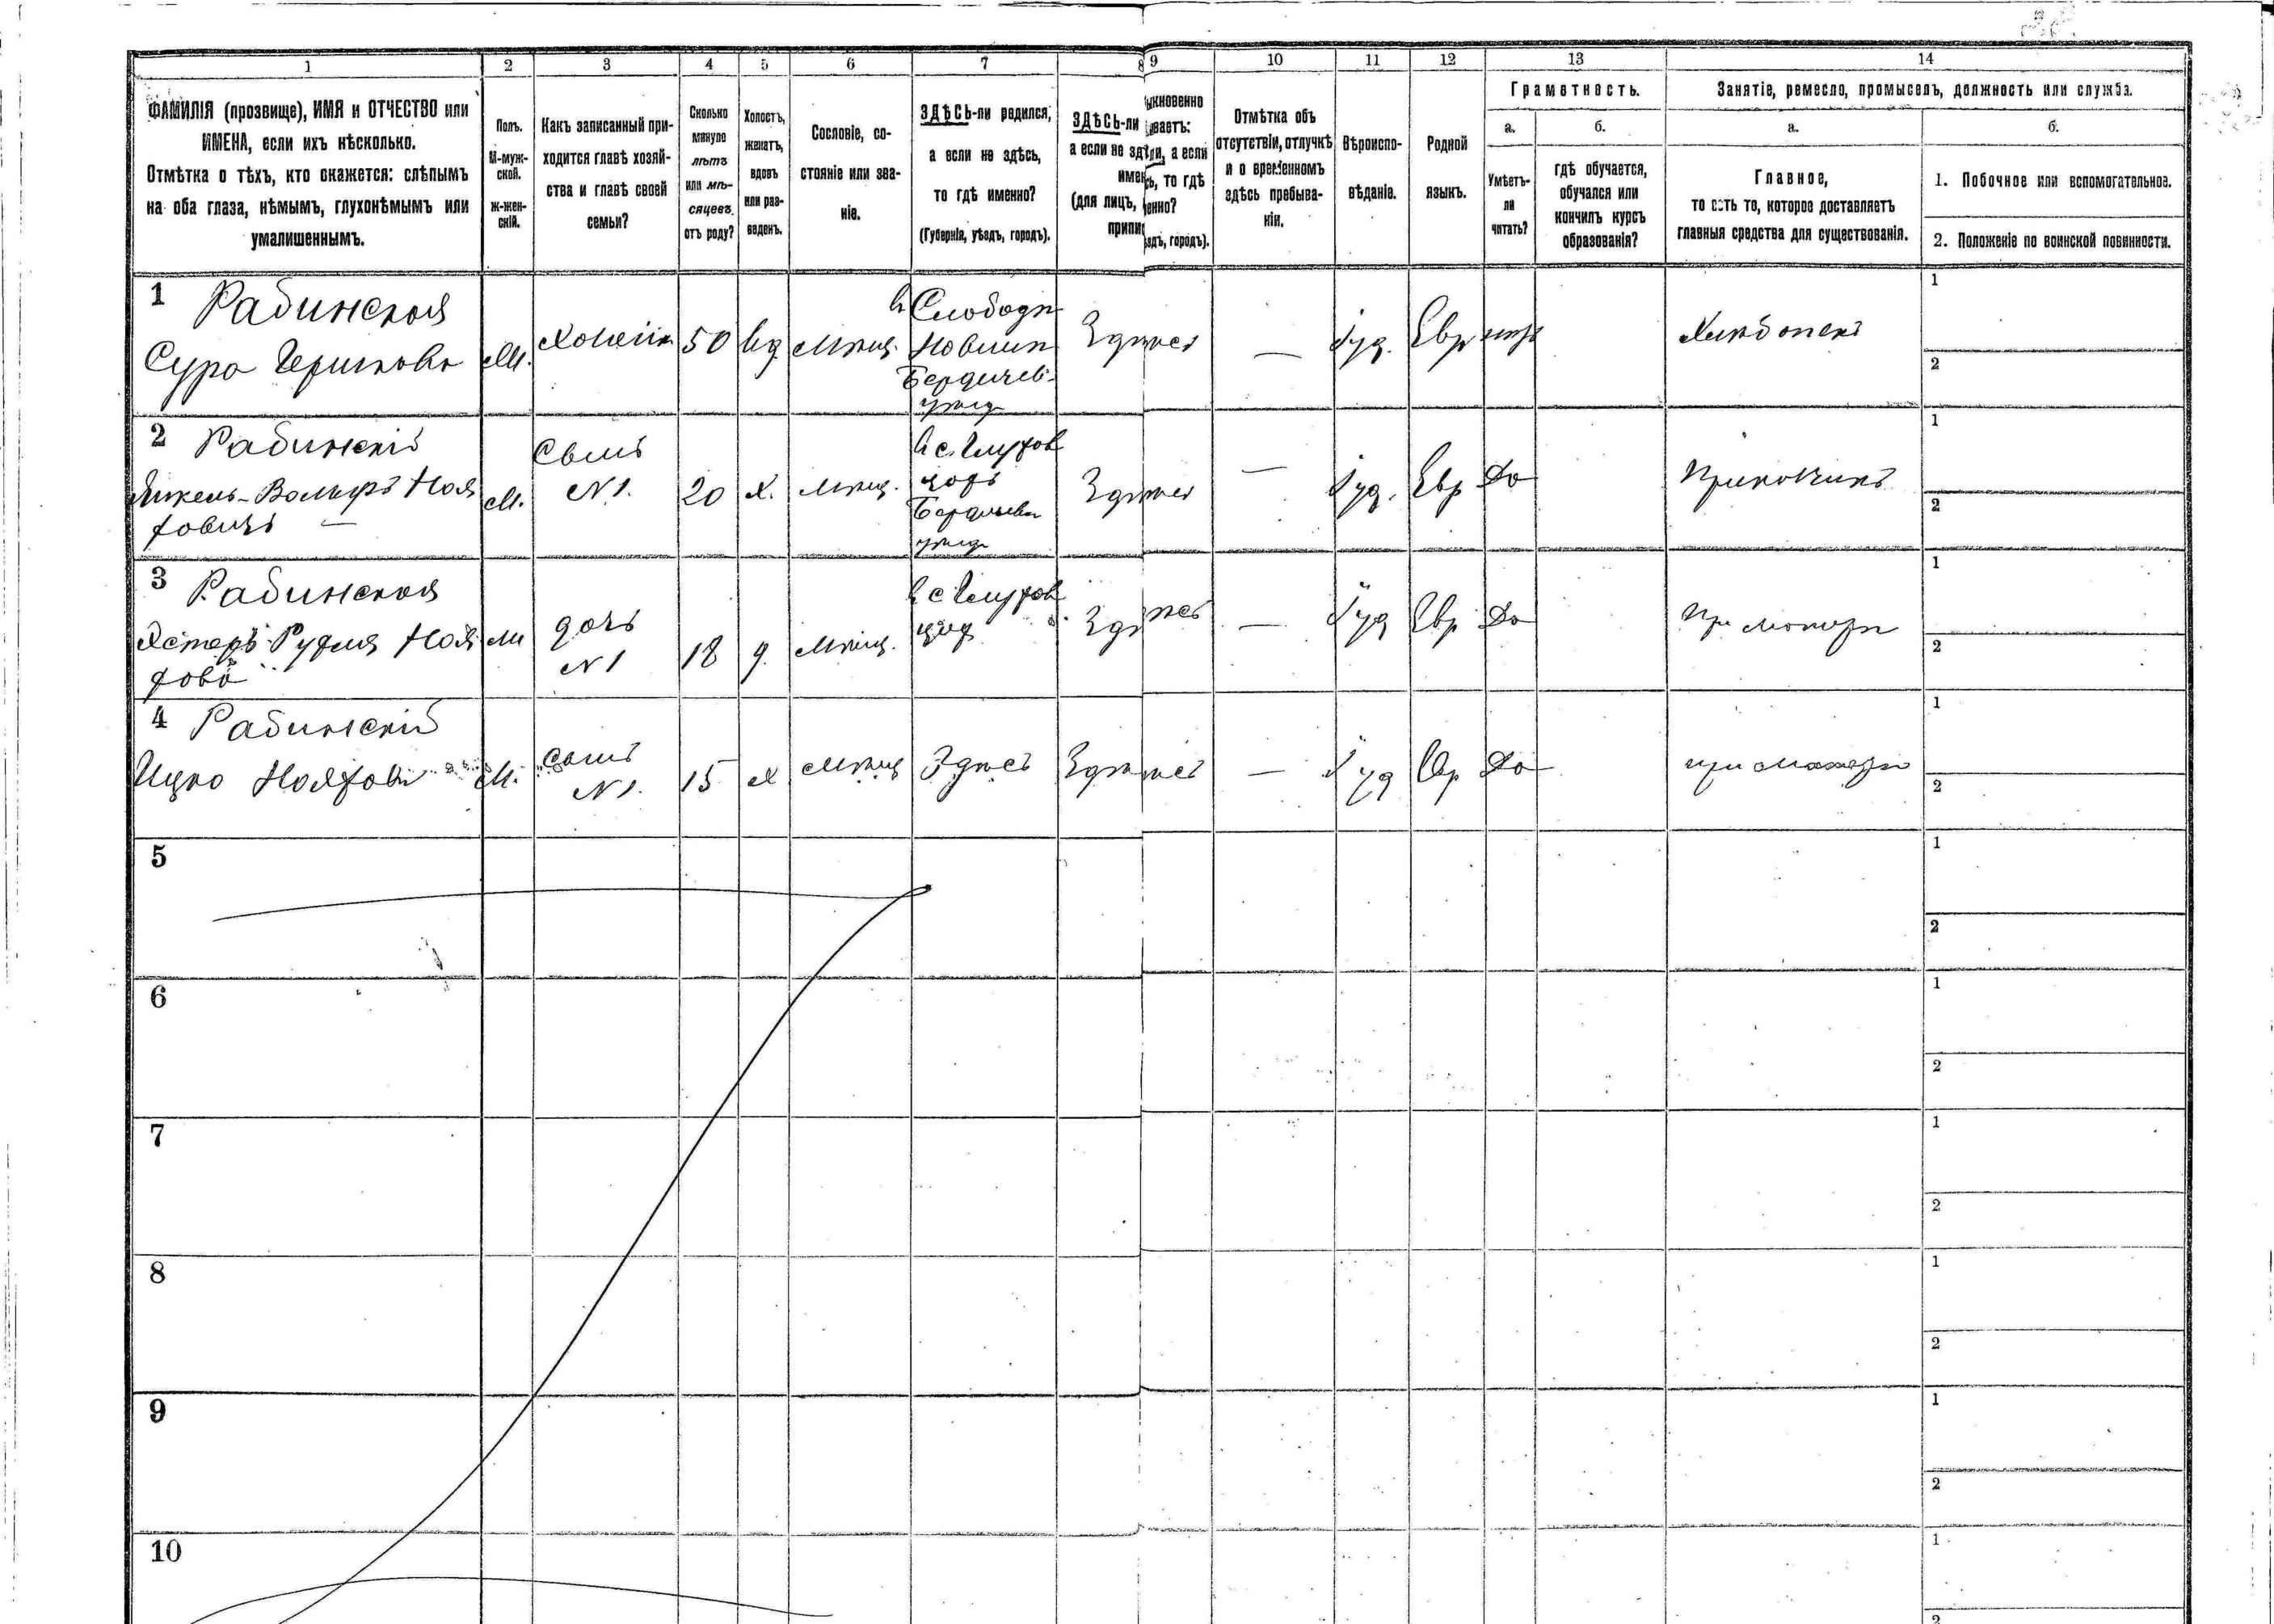 1 2 3 4 5 6 7 8 9 10 11 12 13 14
ФАМИЛІЯ (прозвище), ИМЯ и ОТЧЕСТВО или
ИМЕНА, если ихъ нѣсколько.
Отмѣтка о тѣхъ, кто окажется: слѣпымъ
на оба глаза, нѣмымъ, глухонѣмымъ или
умалишеннымъ.
Полъ.
М-муж-
ской.
Ж-жен-
скій.
Какъ записанный при-
ходится главѣ хозяй-
ства и главѣ своей
семьи?
Сколько
минуло
лѣтъ
или мѣ-
сяцевъ
отъ роду?
Холостъ,
женатъ,
вдовъ
или раз-
веденъ.
Сословіе, со-
стояніе или зва-
ніе.
ЗДѢСЬ-ли родился,
а если не здѣсь,
то гдѣ именно?
(Губернія, уѣздъ, городъ).
ЗДѢСЬ-ли
а если не зд
имен
(для лицъ,
припи
ыкновенно
ваетъ:
ли, а если
ь, то гдѣ
енно?
здъ, городъ).
Отмѣтка объ
отсутствіи, отлучкѣ
и о временномъ
здѣсь пребыва-
ніи.
Вѣроиспо-
вѣданіе.
Родной
языкъ.
Грамотность.
а.
Умѣетъ-
ли
читать?
б.
гдѣ обучается,
обучался или
кончилъ курсъ
образованія?
Занятіе, ремесло, промыселъ, должность или служба.
а.
Главное,
то есть то, которое доставляетъ
главныя средства для существованія.
б.
1. Побочное или вспомогательное.
2. Положеніе по воинской повинности.
1 Рабинская
Сура
М. 50 вд мѣщ.
Слобода
Бердичев.
Здѣсь — Іуд. Евр
1
2
2 Рабинскій
Вольфъ
М. Сынъ
N 1. 20 Х. мѣщ.
Здѣсь — Іуд. Евр До Приказчикъ
1
2
3 Рабинская
Естеръ
дочь
N 1 18 д. мѣщ.
Здѣсь — Іуд Евр До При матери
1
2
4 Рабинскій
Ицко
М. сынъ
N 1. 15 х мѣщ Здѣсь Здѣсь — Іуд Евр До при матери
1
2
5
1
2
6
1
2
7
1
2
8
1
2
9
1
2
10
1
2